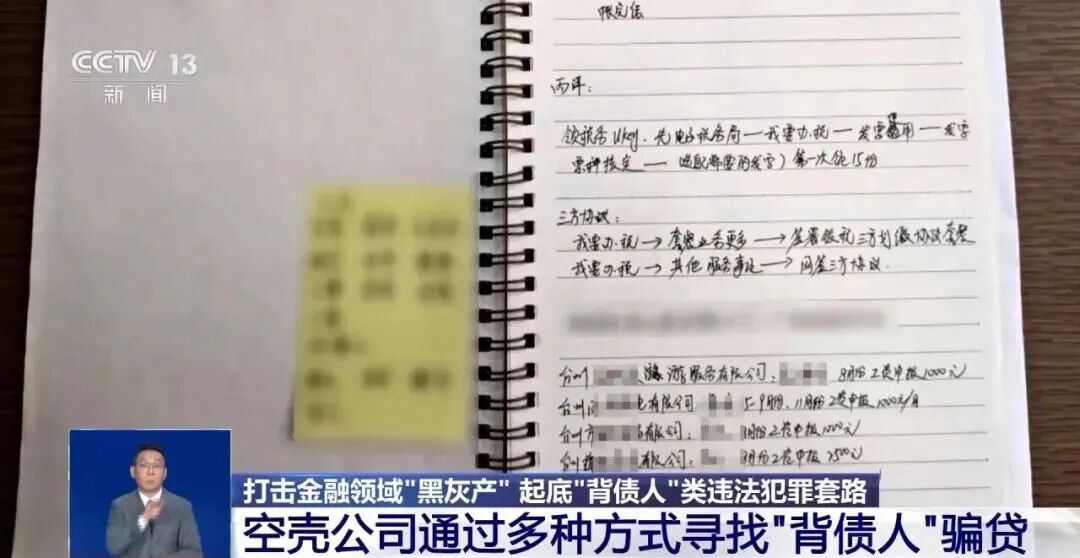 CCTV 13
新闻
西洋：
领税务Ukey. 先电子税务局—我要办税—发票使用—发票
票种核定—选取需要的发票）第一次领15份
三方协议：
我要办税→套餐业务更多→签署银税三方划缴协议套餐
我要办税→其他服务事项→网签三方协议.
台州 旅游服务有限公司： 8月份工资申报1000元
台州 有限公司. 5-9月份、11月份工资申报1000元/月
台州 有限公司： 8月份工资申报1000元
台州 有限公司. 8月份工资申报2500元
打击金融领域"黑灰产" 起底"背债人"类违法犯罪套路
空壳公司通过多种方式寻找"背债人"骗贷